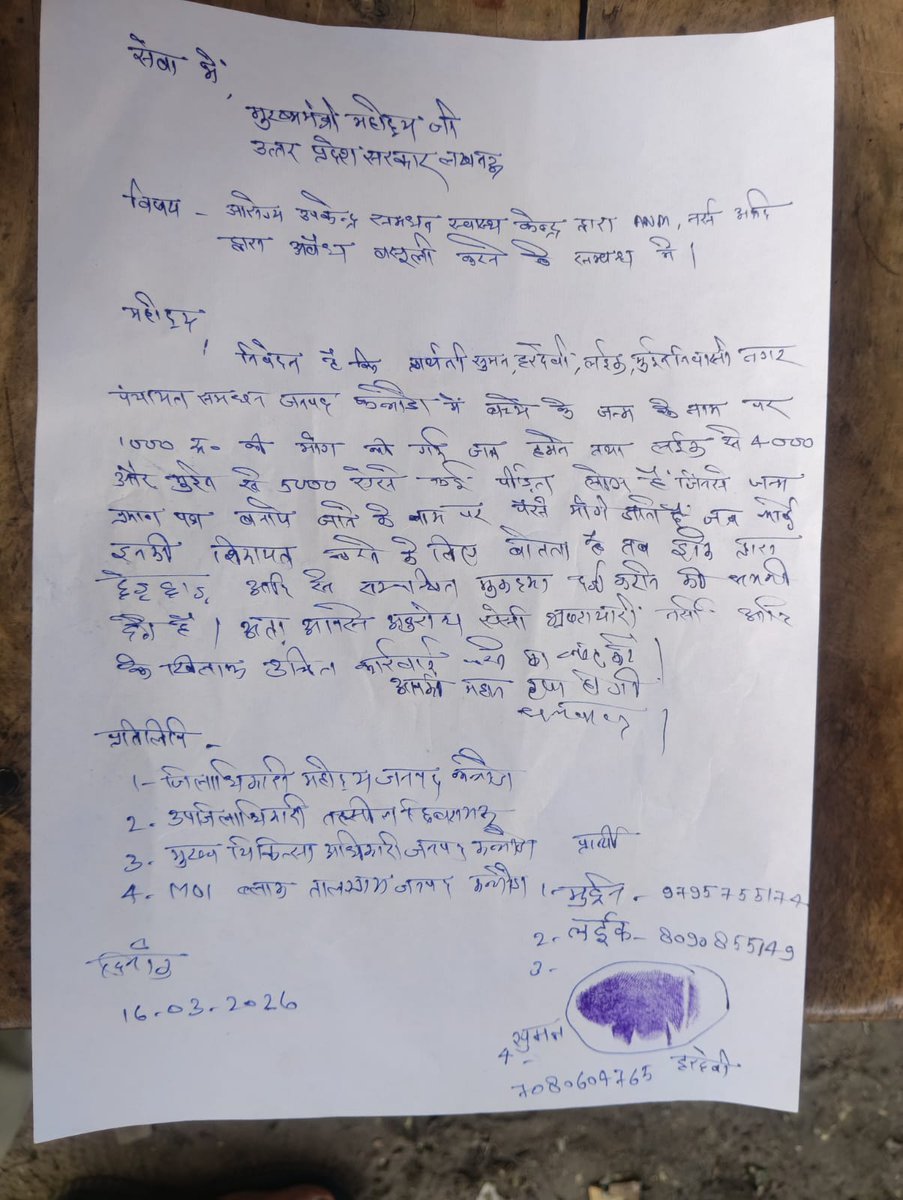 सेवा में,
मुख्यमंत्री महोदय जी
उत्तर प्रदेश सरकार लखनऊ
विषय - आरोग्य उपकेन्द्र समधन स्वास्थ केन्द्र द्वारा ANM, नर्स आदि
द्वारा अवैध वसूली करने के सम्बध में |
महोदय,
निवेदन है कि प्रार्थनी सुमन, हरदेवी, लईक, मुईन निवासी नगर
पंचायत समधन जनपद कन्नौज में बच्चे के जन्म के नाम पर
1000 रु. की माँग की गई जब हमने तथा लईक से 4000
और मुईन से 5000 ऐसे कई पीड़ित लोग हैं जिनसे जन्म
प्रमाण पत्र बनाये जाने के नाम पर पैसे माँगे जाते हैं जब कोई
इनकी शिकायत करने के लिए बोलता है तब इनके द्वारा
छेड़छाड़ आदि से सम्बन्धित मुकदमा दर्ज कराने की धमकी
देते हैं | अतः आपसे अनुरोध ऐसी भ्रष्टाचारी नर्सो आदि
के खिलाफ उचित कार्रवाई करने का कष्ट करें |
आपकी महान कृपा होगी
धन्यवाद |
प्रतिलिपि -
1- जिलाधिकारी महोदय जनपद कन्नौज
2. उपजिलाधिकारी तहसील छिबरामऊ
3. मुख्य चिकित्सा अधिकारी जनपद कन्नौज
प्रार्थी
4. MOI ब्लाक तालग्राम जनपद कन्नौज
1. मुईन - 9795755174
2. लईक - 8090855149
3.
दिनाँक
16.03.2026
सुमन
4.
हरदेवी
7080604765